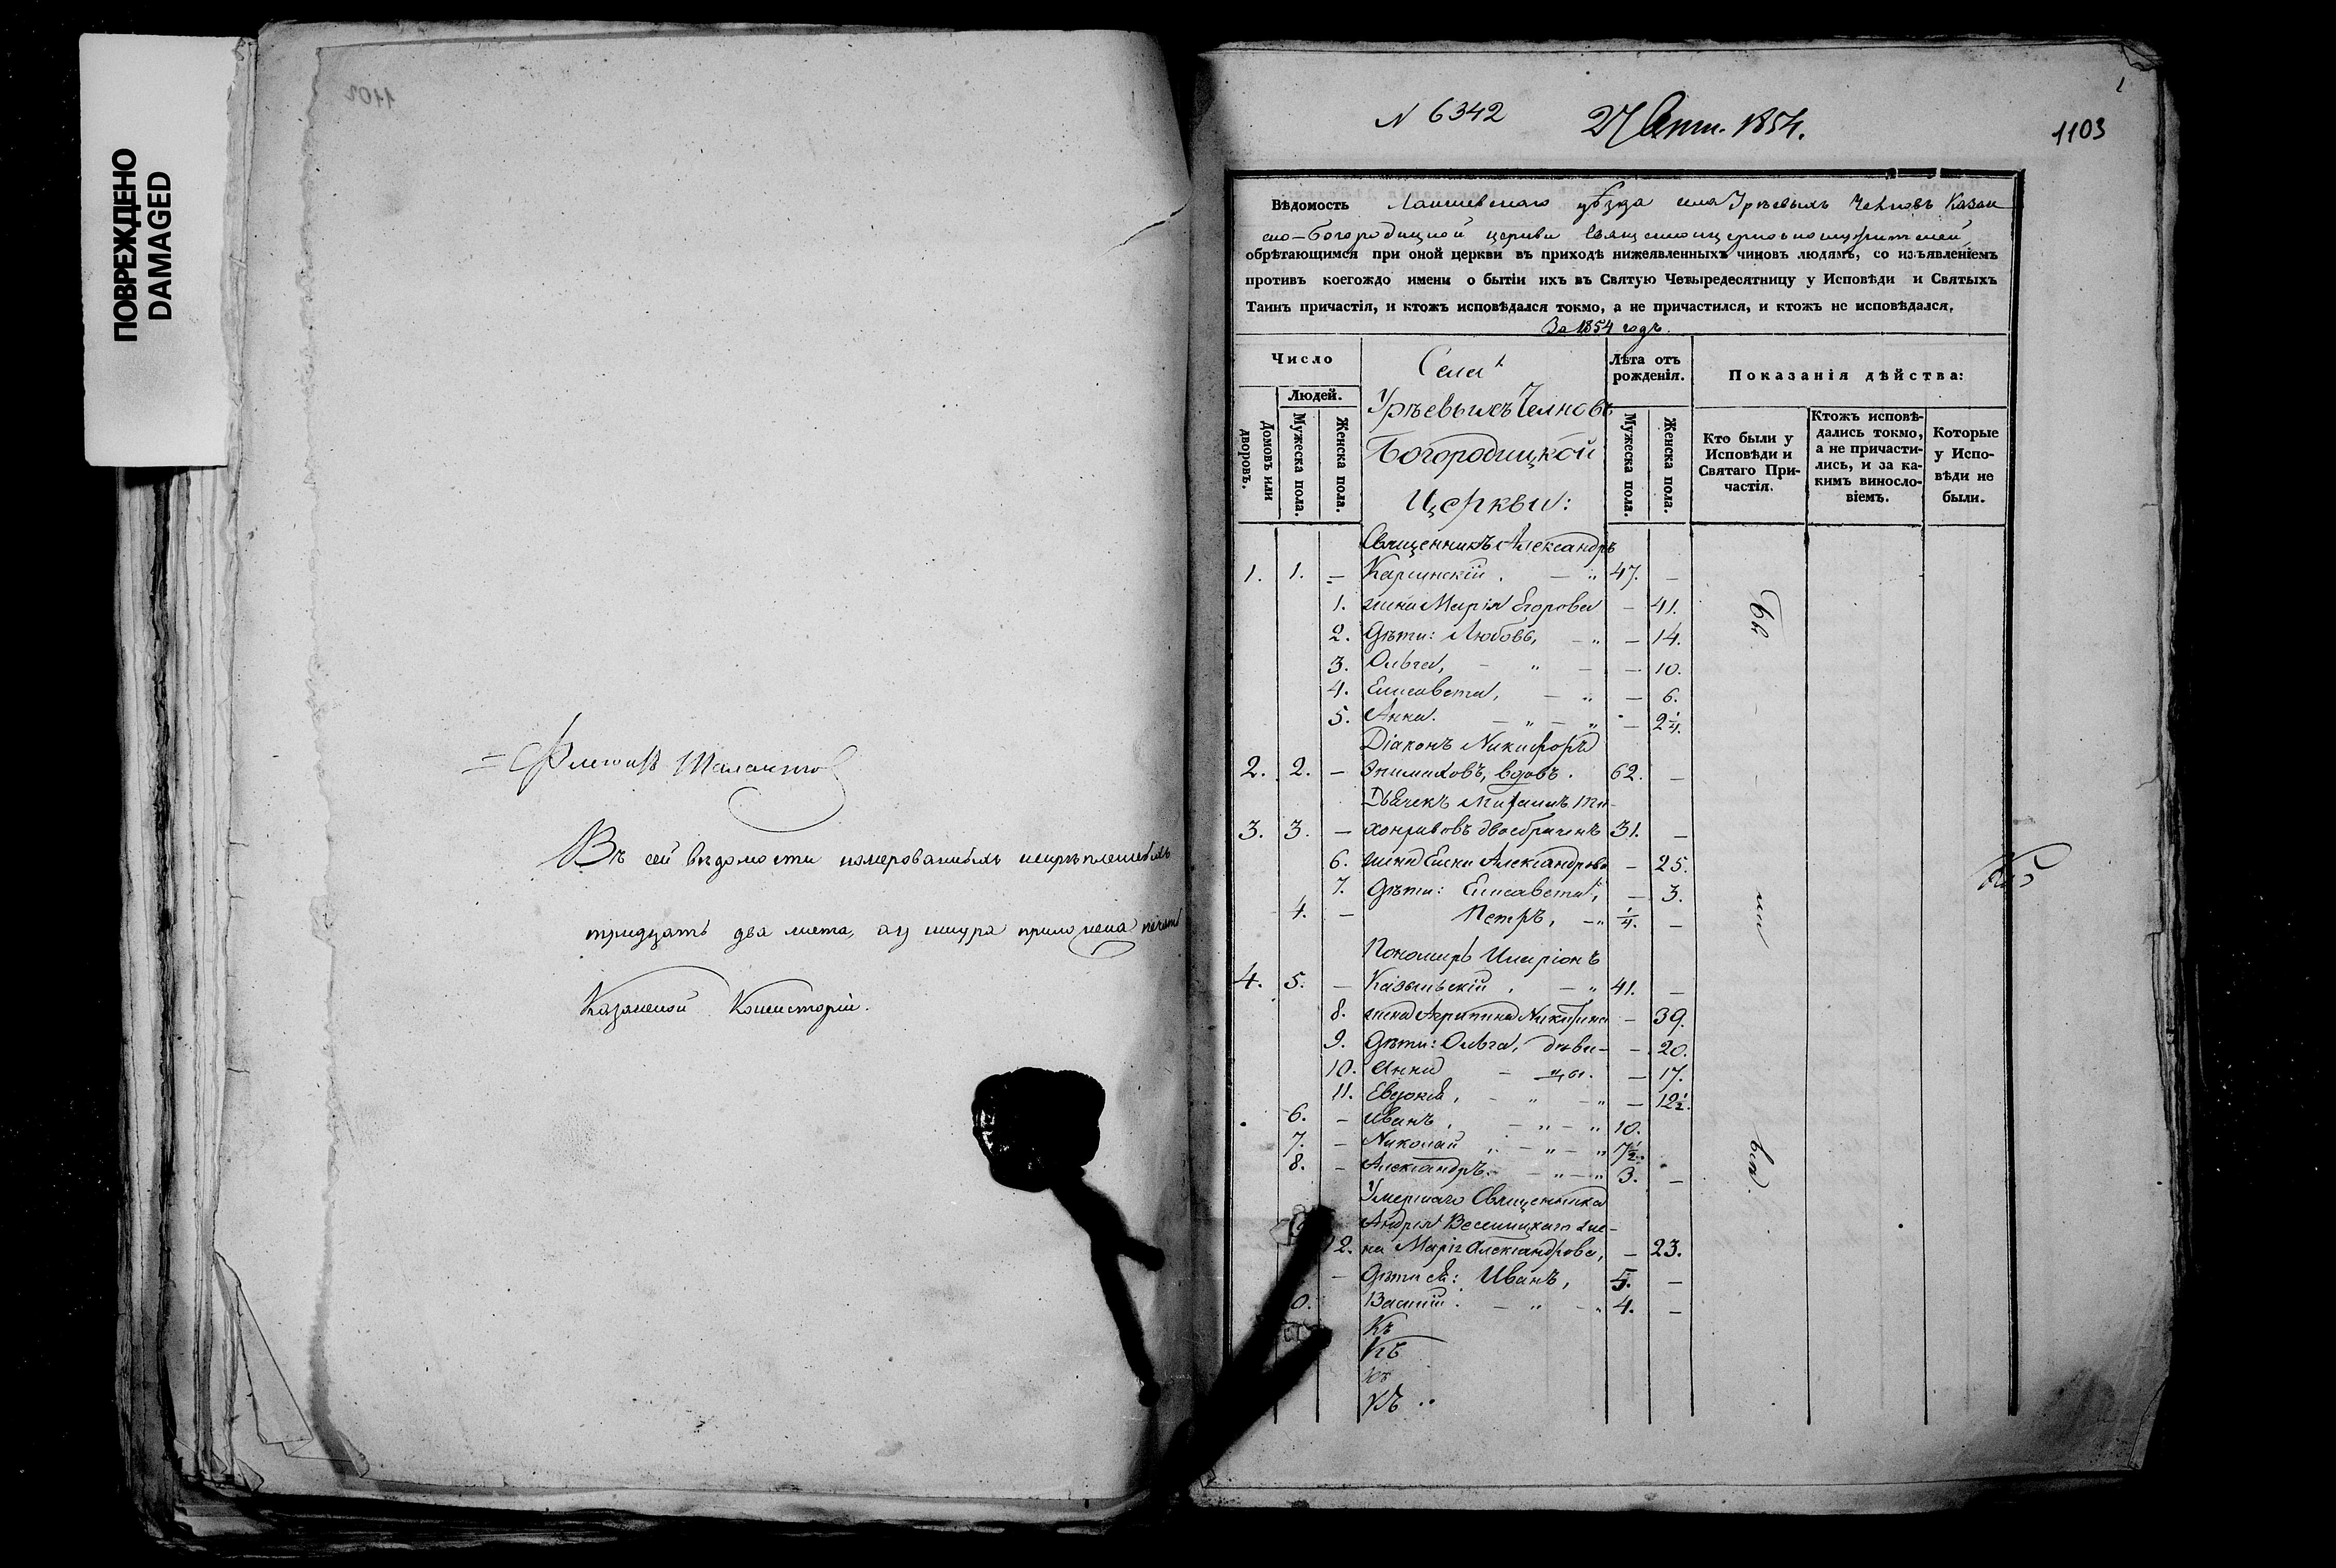 ПОВРЕЖДЕНО
DAMAGED
1102
Въ сей вѣдомости номерованныхъ
тридцать два листа, а у шнура приложена печать
Казанской Консисторіи.
N 6342
27 1854.
1
1103
Вѣдомость Лаишевскаго уѣзда села Урѣевыхъ Челновъ Казан
ско-Богородицкой церкви
обрѣтающимся при оной церкви въ приходѣ нижеявленныхъ чиновъ людямъ, со изъявленіемъ
противъ коегождо имени о бытіи ихъ въ Святую Четыредесятницу у Исповѣди и Святыхъ
Таинъ причастія, и ктожъ исповѣдался токмо, а не причастился, и ктожъ не исповѣдался.
За 1854 годъ.
Число
Людей.
Домовъ или дворовъ.
Мужеска пола.
Женска пола.
Села
Урѣевыхъ Челновъ
Богородицкой
Церкви:
Лѣта отъ рожденія.
Мужеска пола.
Женска пола.
Показанія дѣйства:
Кто были у Исповѣди и Святаго Причастія.
Ктожъ исповѣдались токмо, а не причастились, и за какимъ винословіемъ.
Которые у Исповѣди не были.
Священникъ Александръ
1. 1. – Карминскій. – " 47. –
1. жена Марія Егорова – 41.
2. Дѣти: Любовь, – " – 14.
3. Ольга, – " – – 10.
4. Елисавета, – " – 6.
5. Анна. – " – " – 2 1/4.
Діаконъ Никифоръ
2. 2. – вдовъ. 62. –
Дьячекъ
3. 3. – 31. –
6. жена Елена Александрова – 25.
7. Дѣти: Елисавета, – 3.
4. – Петръ, – " 1/4. –
Пономарь Иларіонъ
4. 5. – – " 41. –
8. жена Агрипина Никитина – 39.
9. Дѣти: Ольга, дѣви- – 20.
10. Анна – цы. – 17.
11. Евдокія, – " – " – 12 1/2.
6. – Иванъ, – " – " 10.
7. – Николай, – " – " 7 1/2.
8. – Александръ. – " – " 3. –
Умершаго Священника
Андрея Веселицкаго же-
12. на Марія Александрова, – 23.
– Дѣти ея: Иванъ, 5. –
0. Василій. – " – " 4. –
Къ
Къ
Къ
Къ
Бы
ли
всѣ.